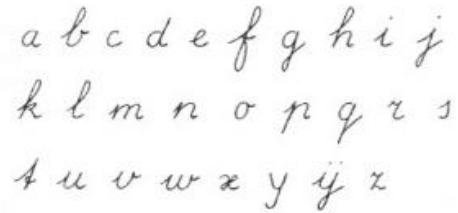 a b c d e f g h i j
k l m n o p q r s
t u v w x y ÿ z